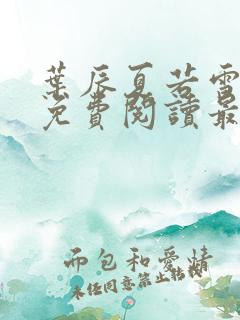 葉辰夏若雪
免費閱讀最
而包和愛情
未经同意禁止转载